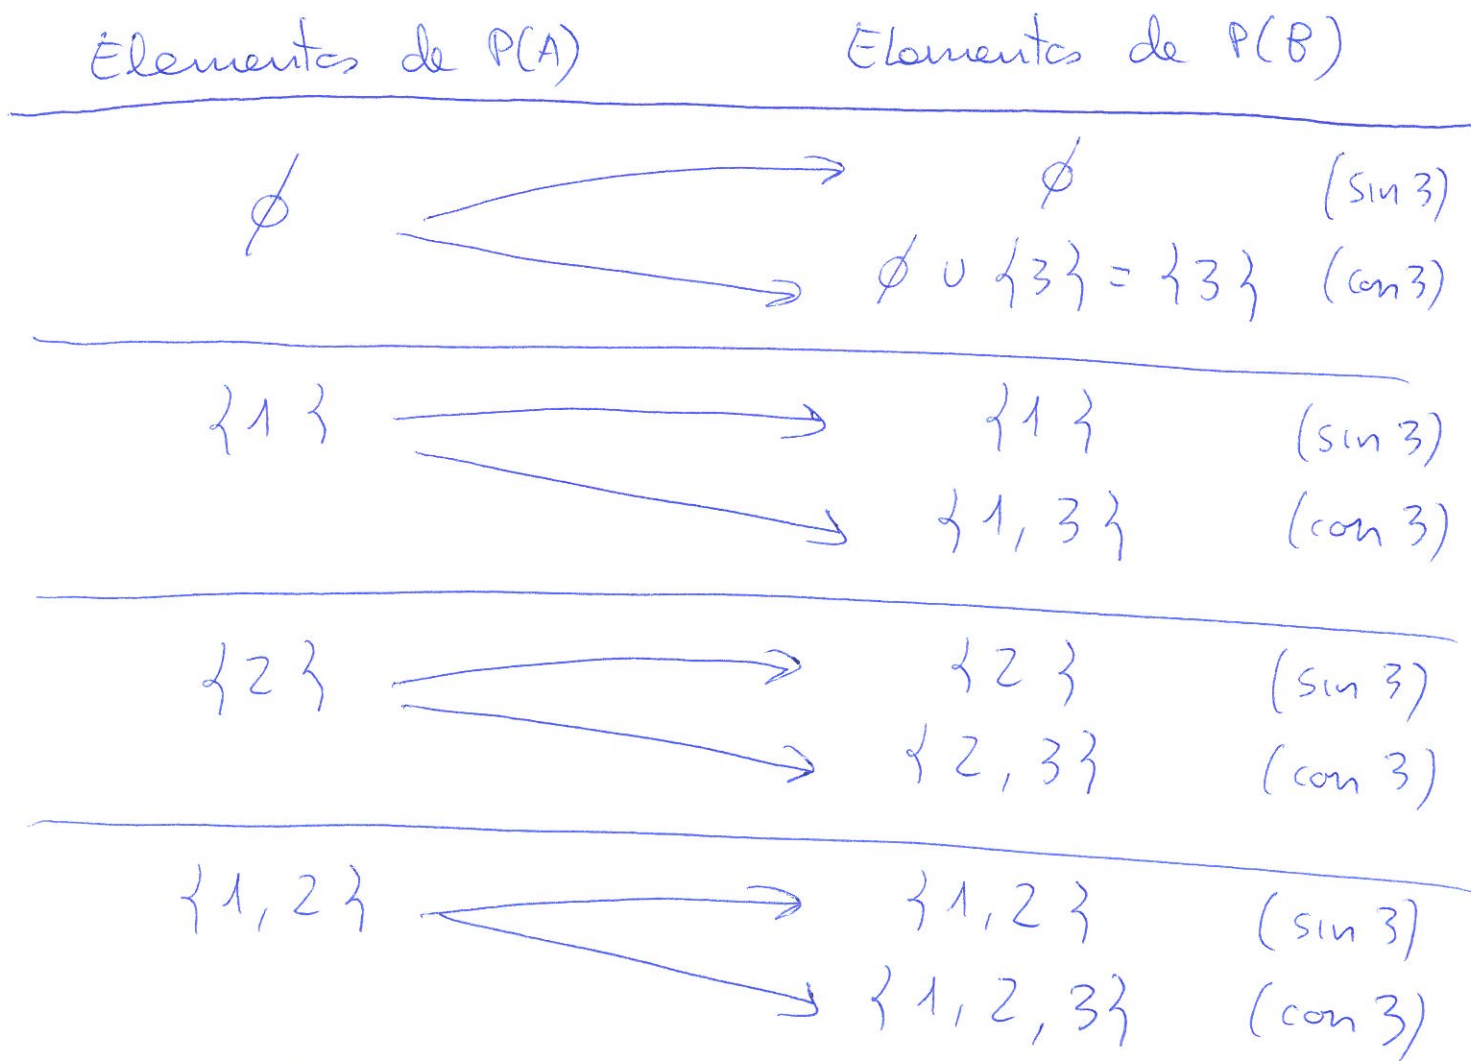 Elementos de P(A) Elementos de P(B)
∅ ∅ (sin 3)
∅ ∪ {3} = {3} (con 3)
{1} {1} (sin 3)
{1, 3} (con 3)
{2} {2} (sin 3)
{2, 3} (con 3)
{1, 2} {1, 2} (sin 3)
{1, 2, 3} (con 3)